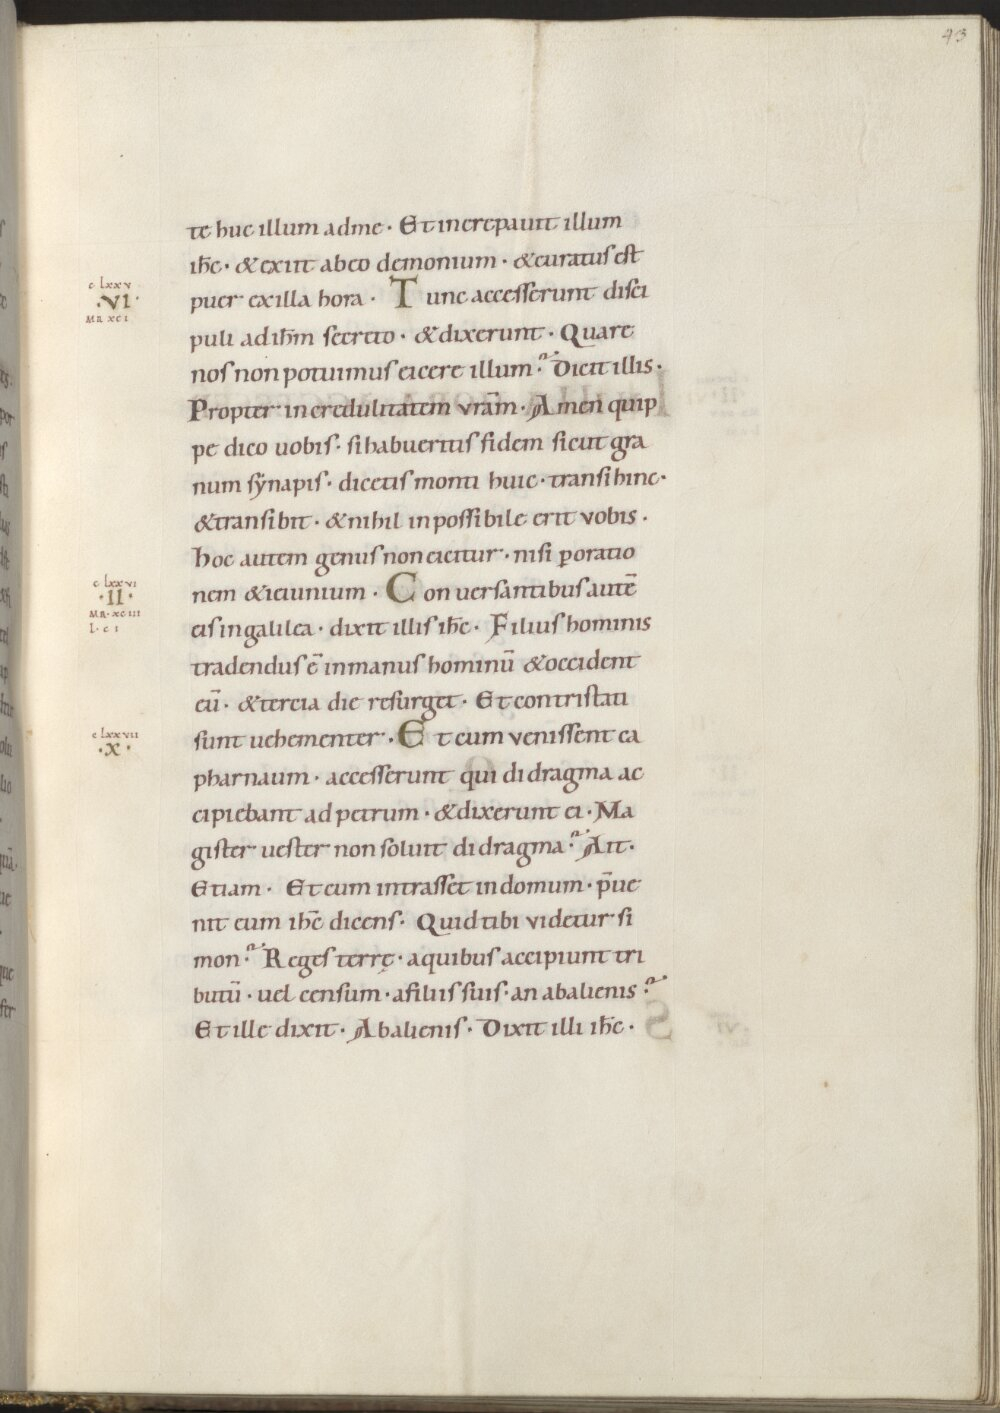 43
te huc illum adme · Et increpauit illum
ih̅c · & exiit abeo demonium · & curatus est
c lxxv
·VI·
MR xci
puer exilla hora · Tunc accesserunt disci
puli ad ih̅m secreto · & dixerunt · Quare
nos non potuimus eicere illum · Dicit illis ·
Propter incredulitatem vr̅am · Amen quip
pe dico uobis · si habueritis fidem sicut gra
num synapis · dicetis monti huic · transi hinc ·
& transibit · & nihil inpossibile erit vobis ·
hoc autem genus non eicitur · nisi p̅ oratio
c lxxvi
·II·
MR·xciii
L·ci
nem & ieiunium · Conuersantibus aute̅
eis ingalilea · dixit illis ih̅c · Filius hominis
tradendus e̅ inmanus hominu̅ & occident
eu̅ · & tercia die resurget · Et contristati
c lxxvii
·X·
sunt uehementer · Et cum venissent ca
pharnaum · accesserunt qui didragma ac
cipiebant ad petrum · & dixerunt ei · Ma
gister uester non soluit didragma · Ait ·
Etiam · Et cum intrasset indomum · p̅ue
nit eum ih̅c dicens · Quid tibi videtur si
mon · Reges terrę · aquibus accipiunt tri
butu̅ · uel censum · afiliis suis · an abalienis
Et ille dixit · Abalienis · Dixit illi ih̅c ·